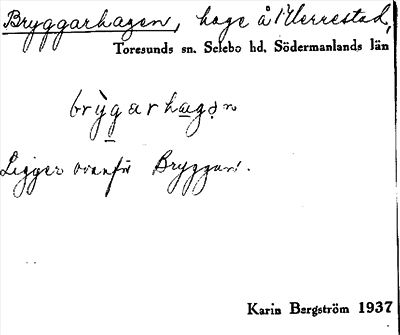 Bryggarhagen, hage å Herrestad,
Toresunds sn. Selebo hd, Södermanlands län
brỳgarhagǝn
Ligger ovanför Bryggars.
Karin Bergström 1937